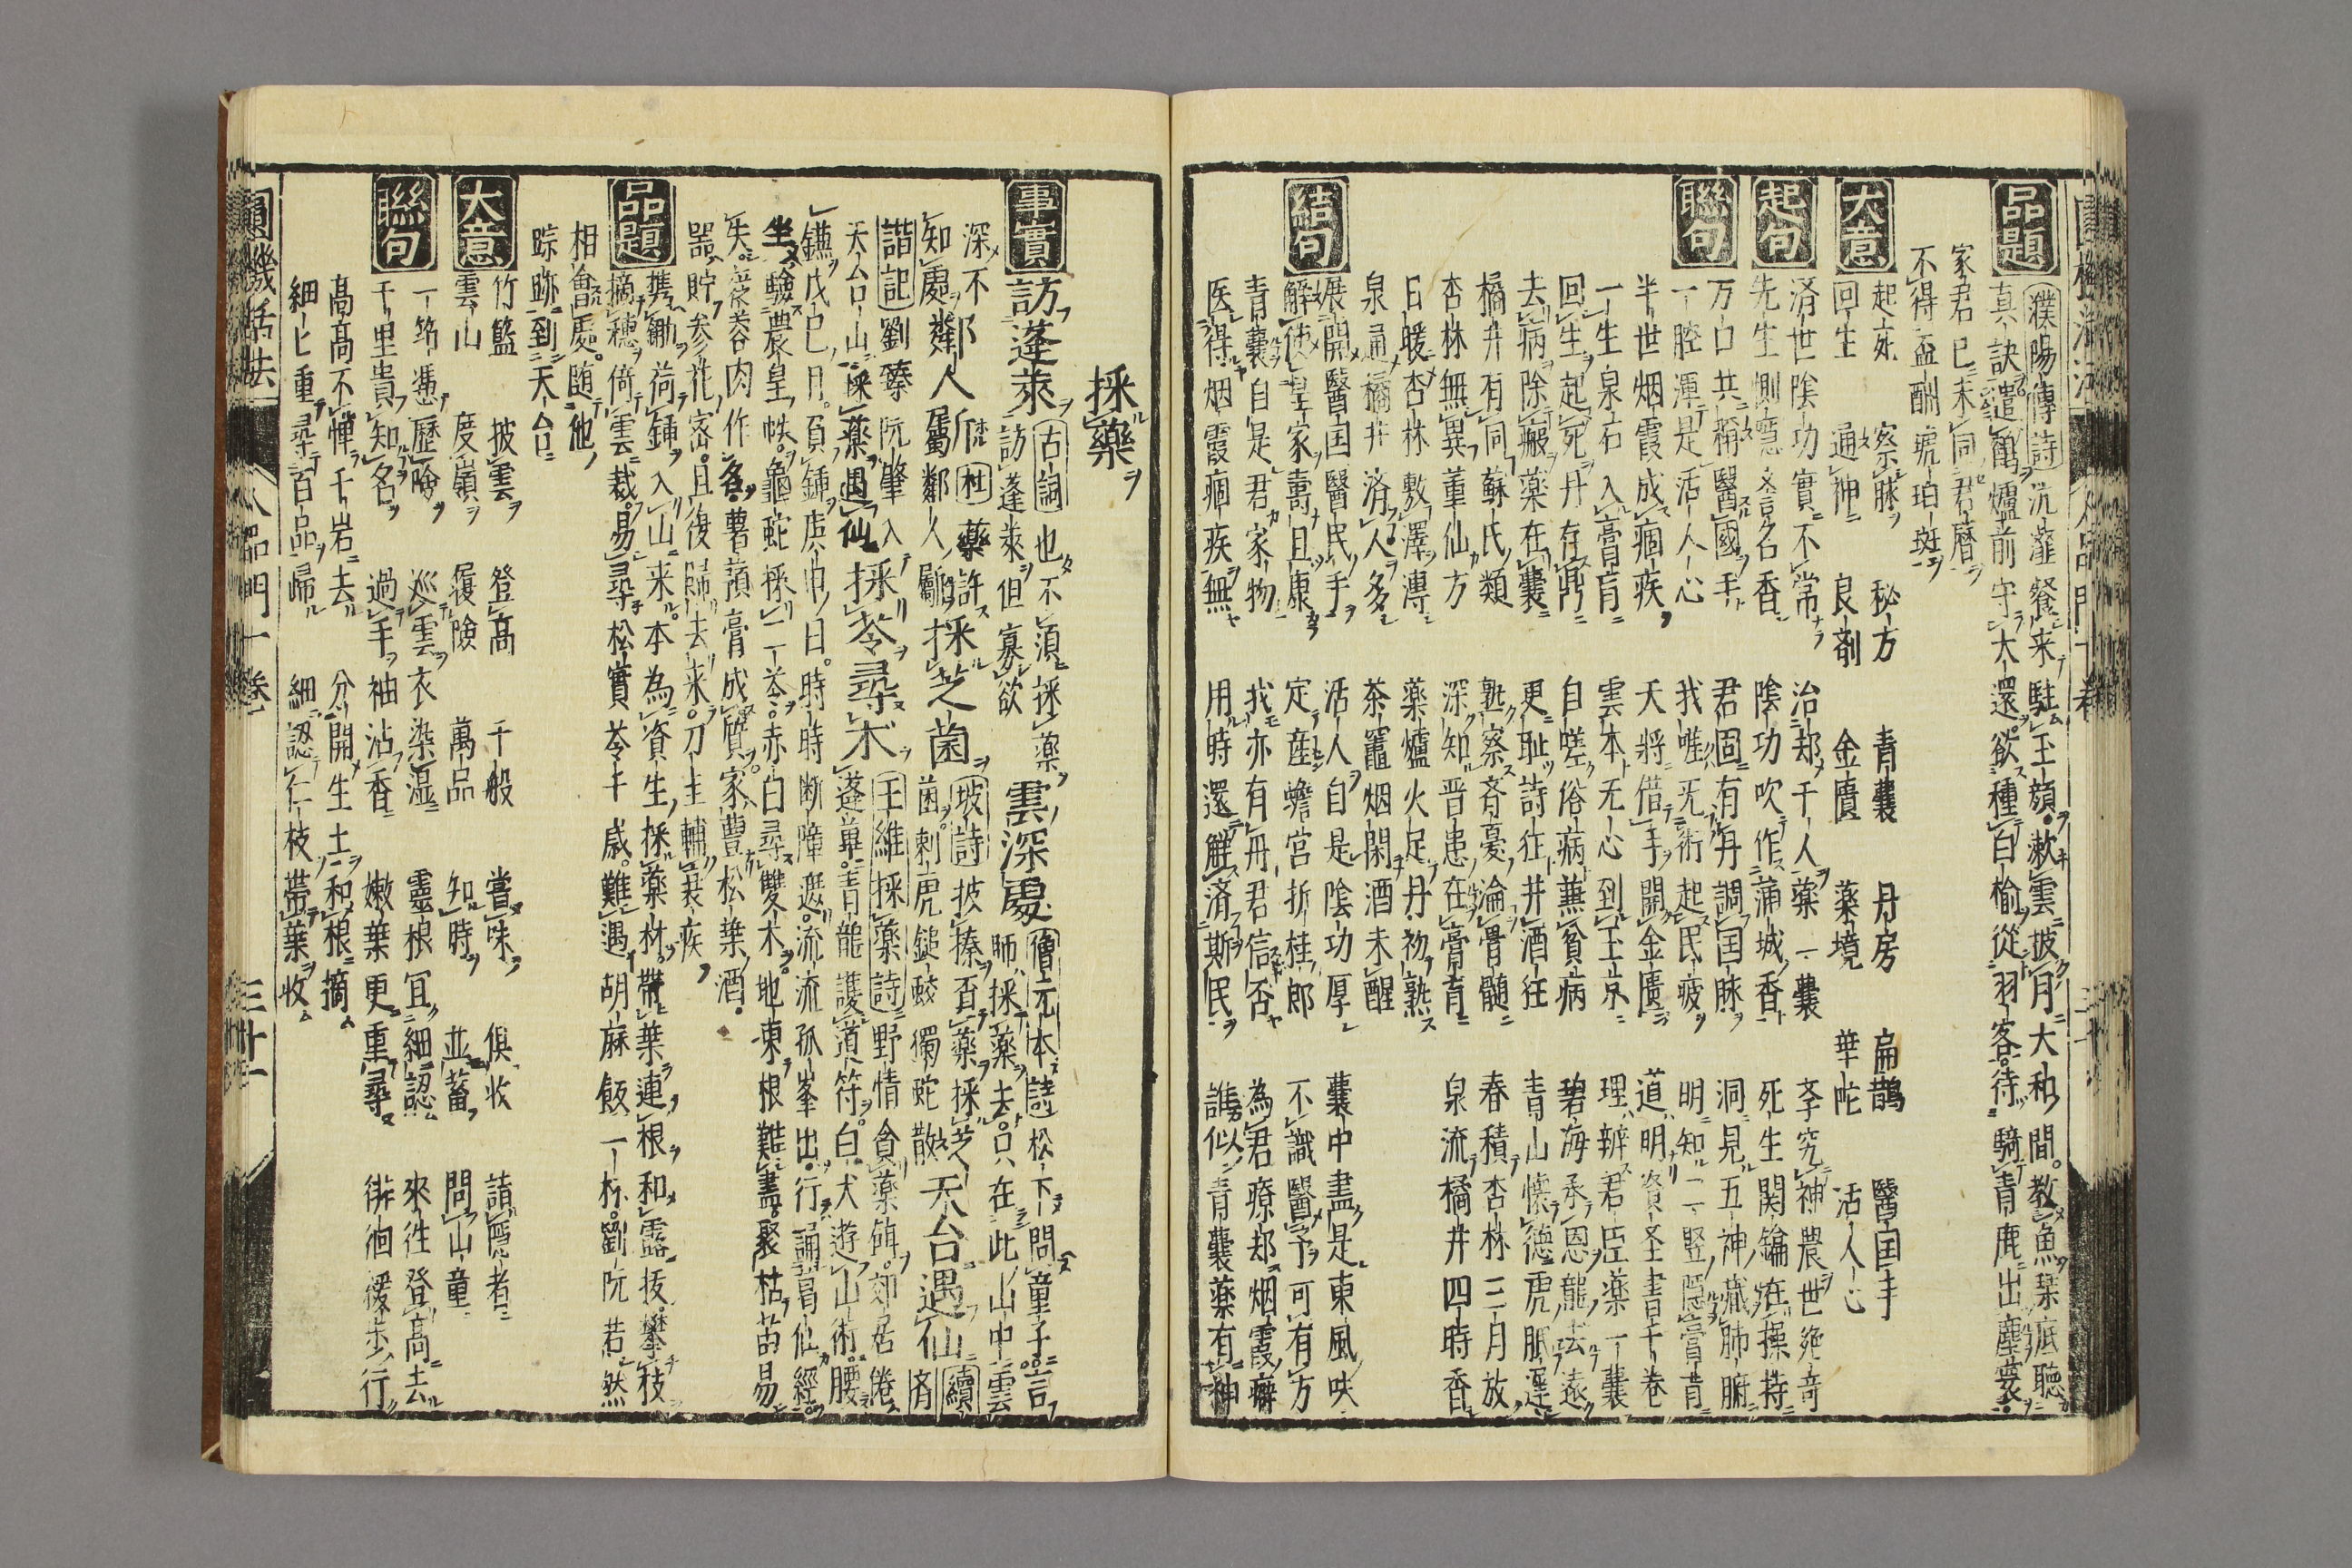 品題
濮陽傳詩 沆瀣餐来駐玉顔漱雲披月大和間教魚琹底聴
真訣譴鶴爐前守大還欲種白榆從羽客待騎青鹿出塵寰
家君已未同君曆
不得盃酬琥珀斑
大意
起死 察脉 秘方 青囊 丹房 扁鵲 醫国手
回生 通神 良剤 金匱 薬境 華佗 活人心
起句
済世陰功實不常 治却千人薬一囊 孝究神農世
先生惻 名香 陰功吹作蒲城香 死生関鑰在操持
聯句
万口共稱醫國手 君固有丹調国脉 洞見五神蔵肺腑
一腔渾是活人心 我嗟无術起民疲 明知二竪隠膏肓
半世烟霞成痼疾 天將借手開金匱 道明資圣書千巻
一生泉石入膏肓 雲本无心到玉京 理辨君臣薬一囊
回生起死丹存鼎 自嗟俗病兼貧病 碧海承恩龍去遠
去病除瘢薬在囊 更耻詩狂井酒狂 青山懐徳虎眠遅
橘井有同蘇氏類 熟察斉憂淪骨髄 春積杏林三月放
杏林無異董仙方 深知晋患在膏肓 泉流橘井四時香
日暖杏林敷澤溥 薬爐火足丹初熟
泉通橘井済人多 茶竈烟閑酒未醒
結句
展開醫国醫民手 活人自是陰功厚 囊中盡是東風吹
解使皇家壽且康 定産蟾宮折桂郎 不識醫予可有方
青囊自是君家物 我亦有舟君信否 為君療却烟霞癖
医得烟霞痼疾無 用時還觧済斯民 誰似青囊薬有神
採薬
事實
訪蓬莱 古詞 也不須採薬 訪蓬莱但寡欲 雲深處 僧元本詩 松下問童子言 師採薬去只在此山中雲
深不知處 鄰人斸 杜 薬許鄰人斸 採芝菌 坡詩 披榛覓薬採芝菌刺虎鎚蛟獨蛇散 天台遇仙 續斉
諧記 劉臻阮肇入天台山採薬遇仙 採苓尋朮 王維採薬詩 野情貪薬餌郊居倦蓬蓽青龍護道符白犬遊山術腰
鎌戊巳月負鍾庚申日時時断嶂遮流流孤峯出行誦嘗仙經
坐驗農皇帙龜蛇採二苓赤白尋雙朮地凍根難盡聚枯苗易
失 蓉肉作名薯蕷膏成質家豊松葉酒
器貯参花密且復歸去来刀圭輔衰疾
品題
携鋤荷鍾入山来本為資生採薬材帯葉連根和露抜攀枝
摘穂倚雲裁易尋松實苓千歳難遇胡麻飯一杯劉阮若然
相會處随他
踪跡到天台
大意
竹籃 披雲 登高 千般 嘗味 倶收 請隠者
雲山 度嶺 履険 萬品 知時 並蓄 問山童
聯句
一筇憑歴険 巡雲衣染湿 靈根冝細認 來徃登高去
千里貴知名 過手袖沾香 嫩葉更重尋 徘徊緩歩行
高高不憚千岩去 分開生土和根摘
細匕重尋百品歸 細認仁枝帯葉收
圓機活法 人品門十巻 三十一